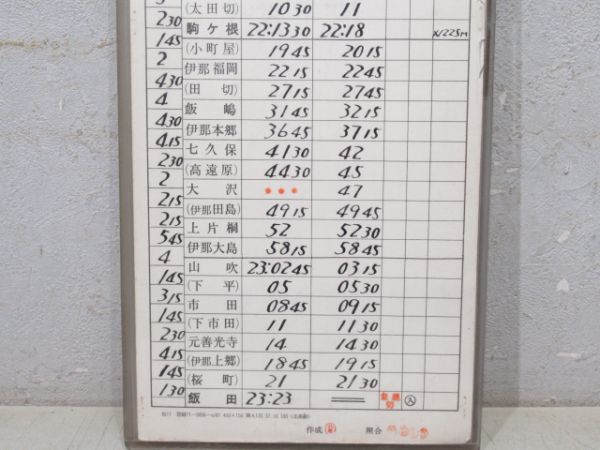 (太田切) 10 30 11
2 30
駒ケ根 22:13 30 22:18 X/225M
1 45
(小町屋) 19 45 20 15
2
伊那福岡 22 15 22 45
4 30
(田切) 27 15 27 45
4
飯嶋 31 45 32 15
4 30
伊那本郷 36 45 37 15
4 15
七久保 41 30 42
2 30
(高遠原) 44 30 45
2
大沢 ••• 47
2 15
(伊那田島) 49 15 49 45
2 15
上片桐 52 52 30
5 45
伊那大島 58 15 58 45
4
山吹 23:02 45 03 15
1 45
(下平) 05 05 30
3 15
市田 08 45 09 15
1 45
(下市田) 11 11 30
2 30
元善光寺 14 14 30
4 15
(伊那上郷) 18 45 19 15
1 45
(桜町) 21 21 30
1 30
飯田 23:23 入
作成 照合